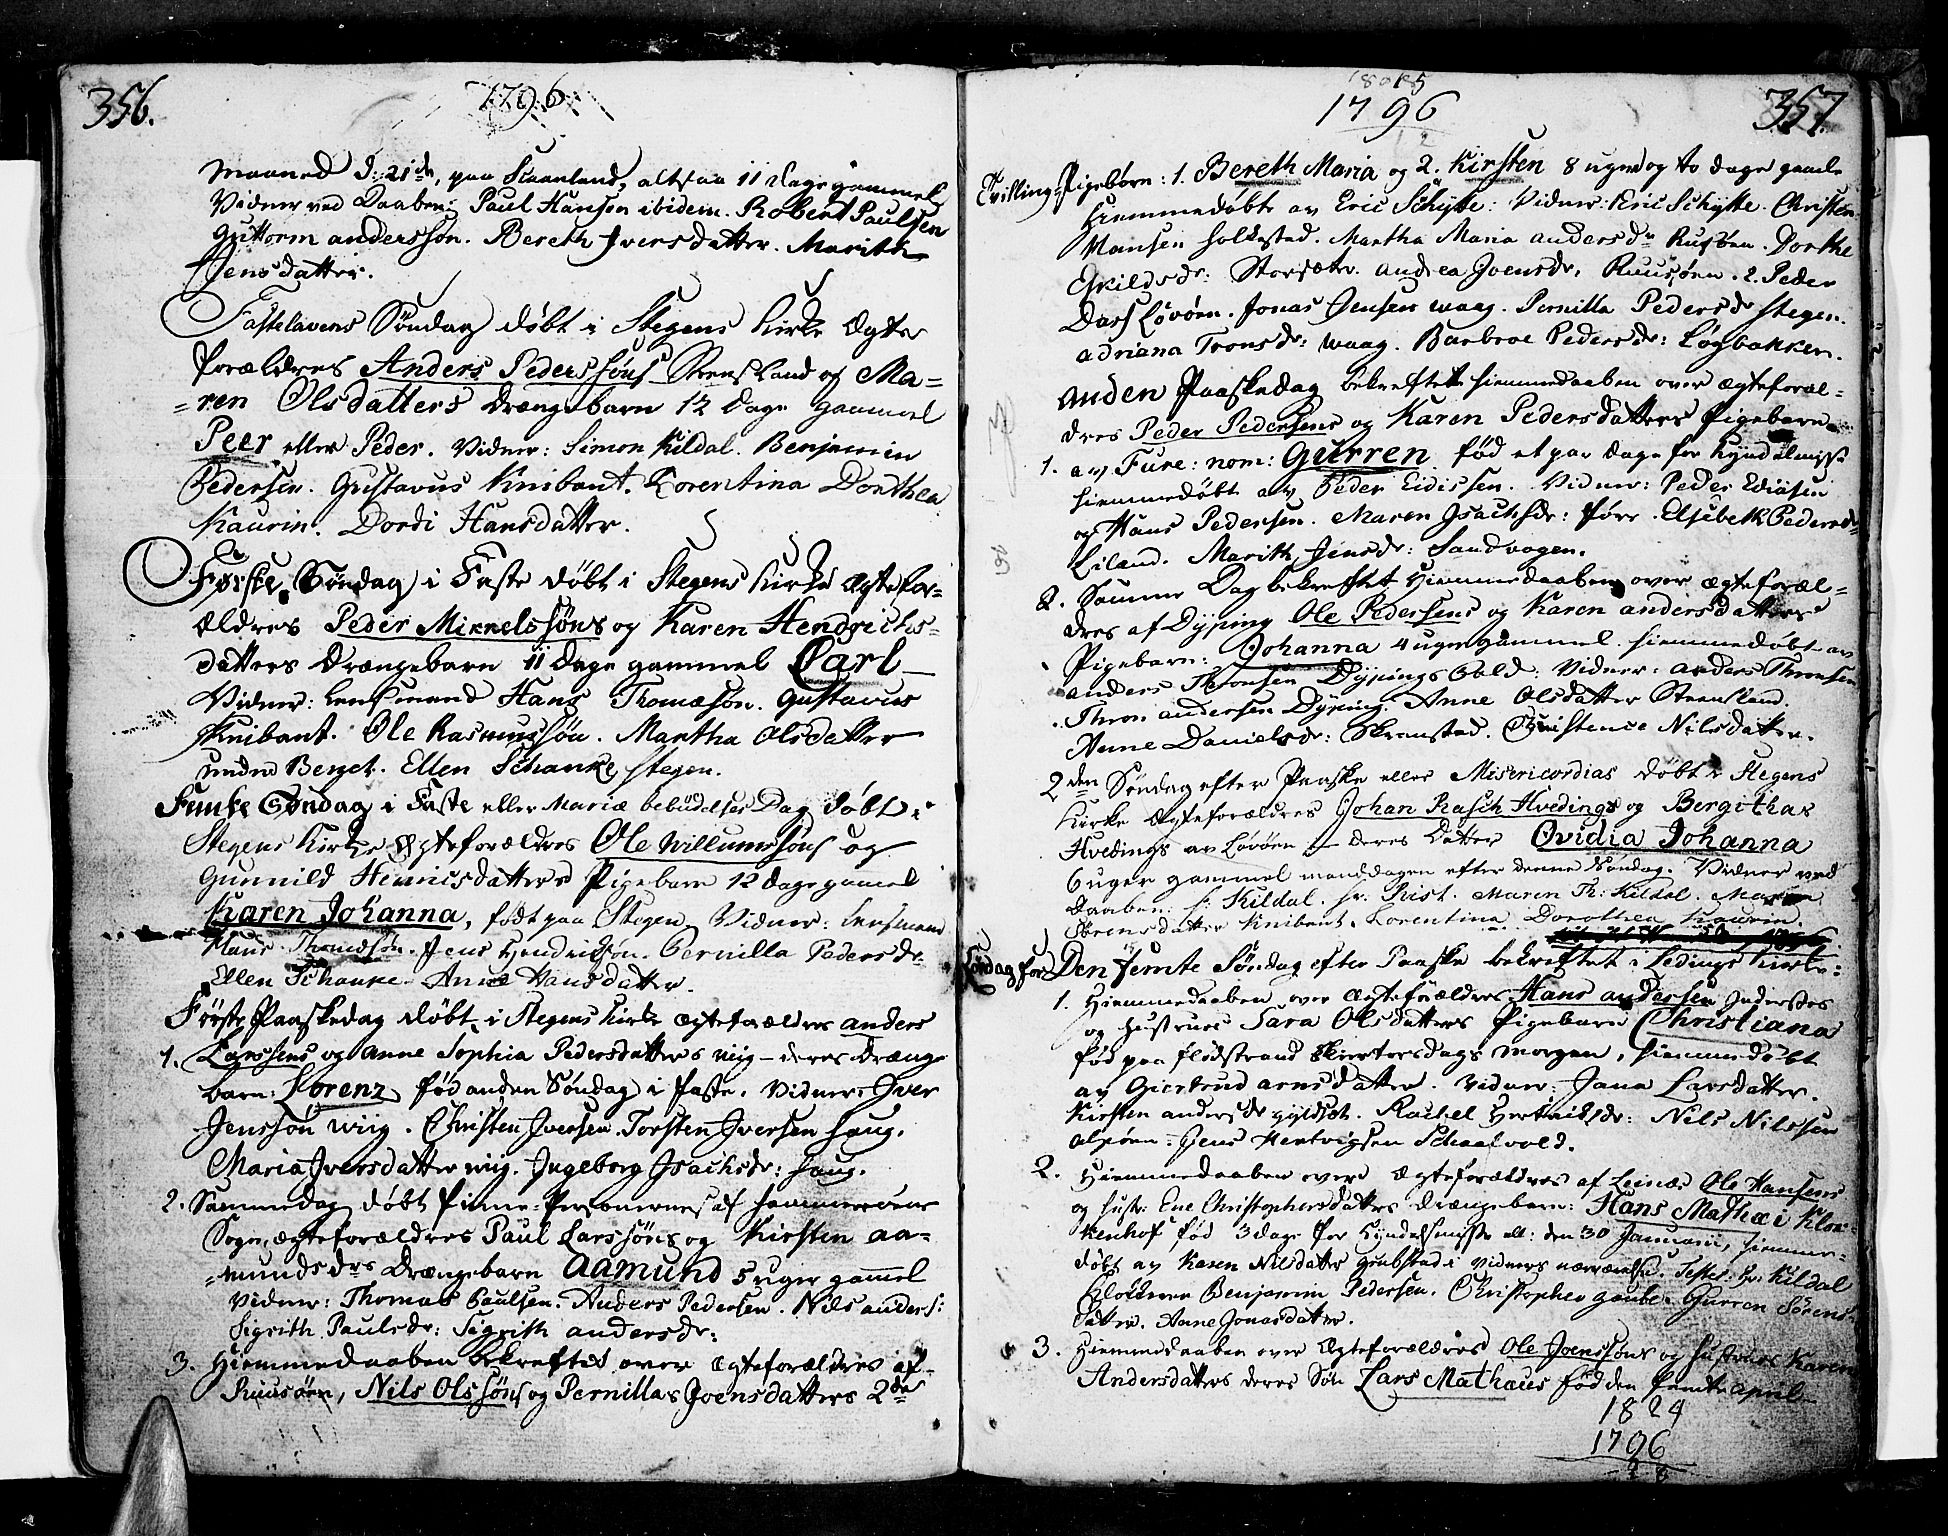 356.
1796
Maaned D: 21de, paa Skaanland, altsaa 11 Dage gammel
Vidner ved Daaben: Paul Hanson ibidem. Robert Paulsen
Guttorm anderssøn. Bereth Iversdatter. Marith
Jensdatter.
Fastelavens Søndag døbt i Stegens Kirke Ægte
forældres Anders Pederssøns Steensland og Ma=
=ren Olsdatters Drængebarn 12 Dage gammel
Peer eller Peder. Vidner: Simon Kildal. Benjamin
Pedersen. Gustavus Knibant. Lorentina Dorthea
Kaurin. Dordi Hansdatter.
Første Søndag i Faste døbt i Stegens Kirke Ægtefor=
ældres Peder Mikkelssøns og Karen Hendrichs=
datters Drængebarn 11 Dage gammel Carl
Vidner: Lensmand Hans Thomæsøn. Gustavus
Knibant. Ole Rasmussøn. Martha Olsdatter
unden Berget. Ellen Schanke Stegen.
Femte Søndag i Faste eller Mariæ bebudelses Dag døbt i
Stegens Kirke Ægteforældres Ole Willumssøns og
Gunnild Henricsdatters Pigebarn 12 Dage gammel
Karen Johanna, født paa Stegen. Vidner: Lensmand
Hans Thomæsøn. Jens Hendrichsøn. Pernilla Pedersdr
Ellen Schanke. Anne Hansdatter.
Første Paaskedag døbt i Stegens Kirke Ægteforældres anders
1. Larssens og Anne Sophia Pedersdatters Wiig - deres Drænge
barn: Lorenz, fød anden Søndag i Faste. Vidner: Iver
Jenssøn Wiig. Christen Iversen. Torsten Iversen Haug.
Maria Iversdatter Wiig. Ingeborg Isachsdr: Haug.
2. Samme dag døbt Finne-Personernes af Hammerøens
Sogn, Ægteforældres Paul Larssøns og Kirsten Aa=
=mundsdrs Drængebarn Aamund 5 uger gammel
Vidner: Thomas Paulsen. Anders Pedersen. Nils anders:
Sigrith Paulsdr: Sigrith andersdr:
3. Hiemmedaaben bekreftet over Ægteforældres af
Ruusøen, Nils Olssøns og Pernillas Joensdatters 2de
1805
1796
357.
Tvilling-Pigebørn: 1. Bereth Maria og 2. Kirsten 8 uger og to dage gamle
Hiemmedøbte av Eric Schytte: Vidner: Eric Schytte. Christen
Hansen Holkestad. Martha Maria andersdr Rusøen. Dorthe
Eskildsdr: Storsæter. Andrea Joensdr, Ruusøen. 2. Peder
Dass Løvøen. Jonas Jensen Waag. Pernilla Pedersdr Stegen.
Adriana Tronsdr: Waag. Barbroe Pedersdr: Løgbakken.
Anden Paaskedag bekreftet Hiemmedaaben over Ægteforæl=
dres Peder Pedersens og Karen Pedersdatters Pigebarn
1. av Fure: nom: Gurren fød et par dage før Kyndelmisse
hiemmedøbt av Peder Eidissen. Vidner: Peder Edissen
og Hans Pedersen. Maren Isachsdr: Føre. Elsebeth Pedersdr
Liland. Marith Jensdr: Sandvogen.
2. Samme Dag bekreftet Hiemmedaaben over Ægteforæl=
dres af Dyping Ole Pedersens og Karen andersdatters
Pigebarn: Johanna 4 uger gammel hiemmedøbt av
Anders Thronsen Dypings Eld: Vidner: Anders Thronsen
Thron andersen Dyping. Anne Olsdatter Steensland.
Anne Danielsdr: Skremstad. Christence Nilsdatter.
2den Søndag efter Paaske eller Misericordias døbt i Stegens
Kirke Ægteforældres Johan Rasch Hvedings og Bergithas
Hvedings av Løvøen - deres Datter Ovidia Johanna
6 uger gammel manddagen efter denne Søndag. Vidner ved
Daaben: Hr: Kildal. hr. Rist. Maren Th: Kildal. Maren
Sørensdatter Knibant. Lorentina Dorothea Kaurin.
Søndag før Den femte Søndag efter Paaske bekreftet i Ledings Kirke:
1. Hiemmedaaben over Ægteforældres Hans Andersen Inderstes
og Hustrues Sara Olsdatters Pigebarn Christiana
fød paa Flodstrand Skiertorsdags morgen, hiemmedøbt
av Giertrud arnsdatter. Vidner: Jana Larsdatter.
Kirsten andersdr. Rachel Hertviksdr: Nils Nilssen
Alpøen. Jens Hertvigsen Schaalvold.
2. Hiemmedaaben over Ægteforældres af Leines Ole Hansens
og hustr: Ene Christophersdatters Drængebarn: Hans Mathæi Klok=
kenhof fød 3 dage før Kyndelsmisse all: den 30 Januarii, hiemme=
døbt av Karen Nilsdatter Grubstad i Vidners nærværelse. Testes: Hr: Kildal
Clokkeren Benjamin Pedersen. Christopher Gaube. Gurren Sørens=
datter. Anne Jonasdatter.
3. Hiemmedaaben over Ægteforældres Ole Joenssøns og hustrues Karen
Andersdatters deres Søn Lars Mathæus fød den femte april
1824
1796
28